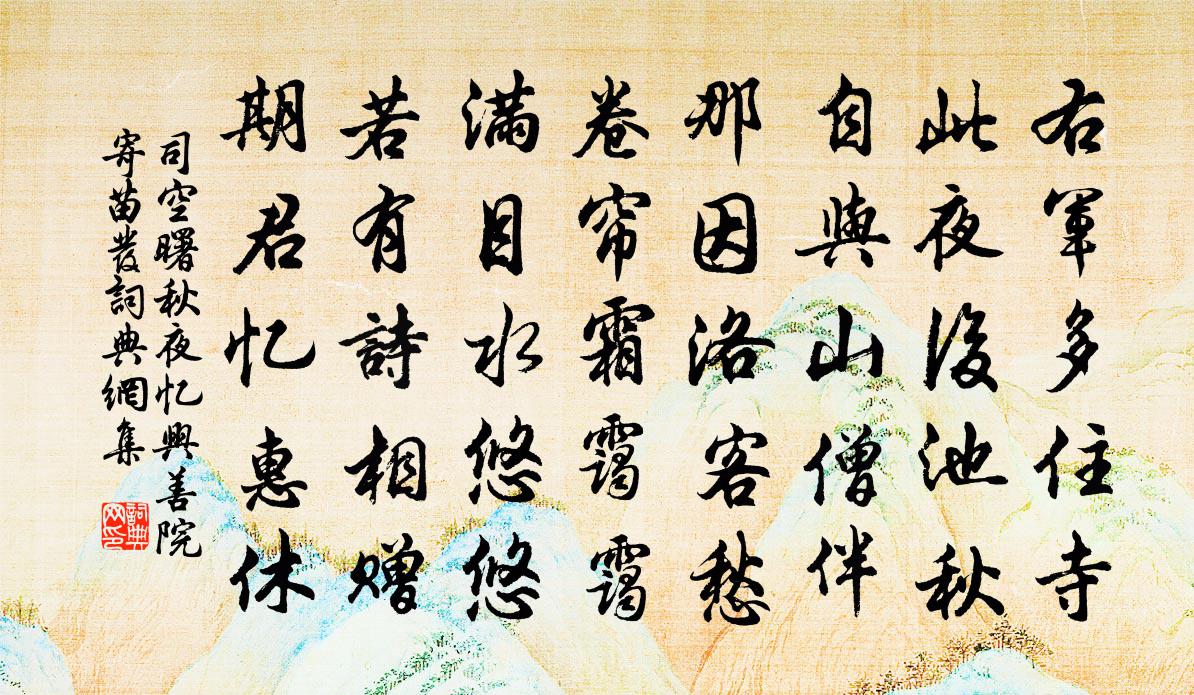 右軍多住寺
此夜後池秋
自與山僧伴
那因洛客愁
卷帘霜靄靄
滿目水悠悠
若有詩相贈
期君忆惠休
司空曙秋夜忆興善院
寄苗發詞典網集
詞典网印